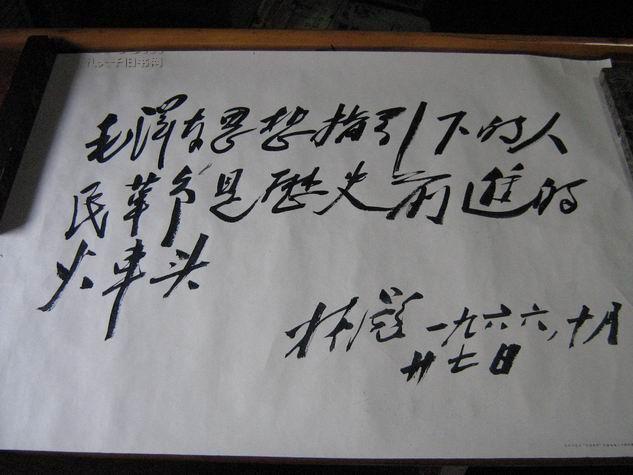 孔夫子旧书网
毛泽东思想指引下的人
民革命是歷史前進的
火車头
林彪 一九六六,十月
廿七日